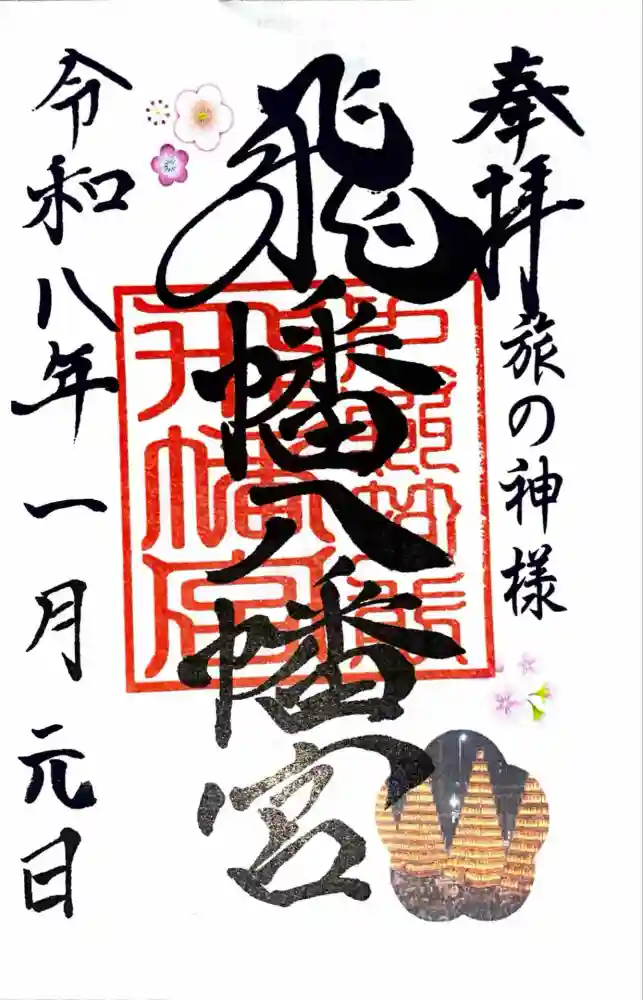 奉拝
旅の神様
飛幡八幡宮
令和八年一月元日